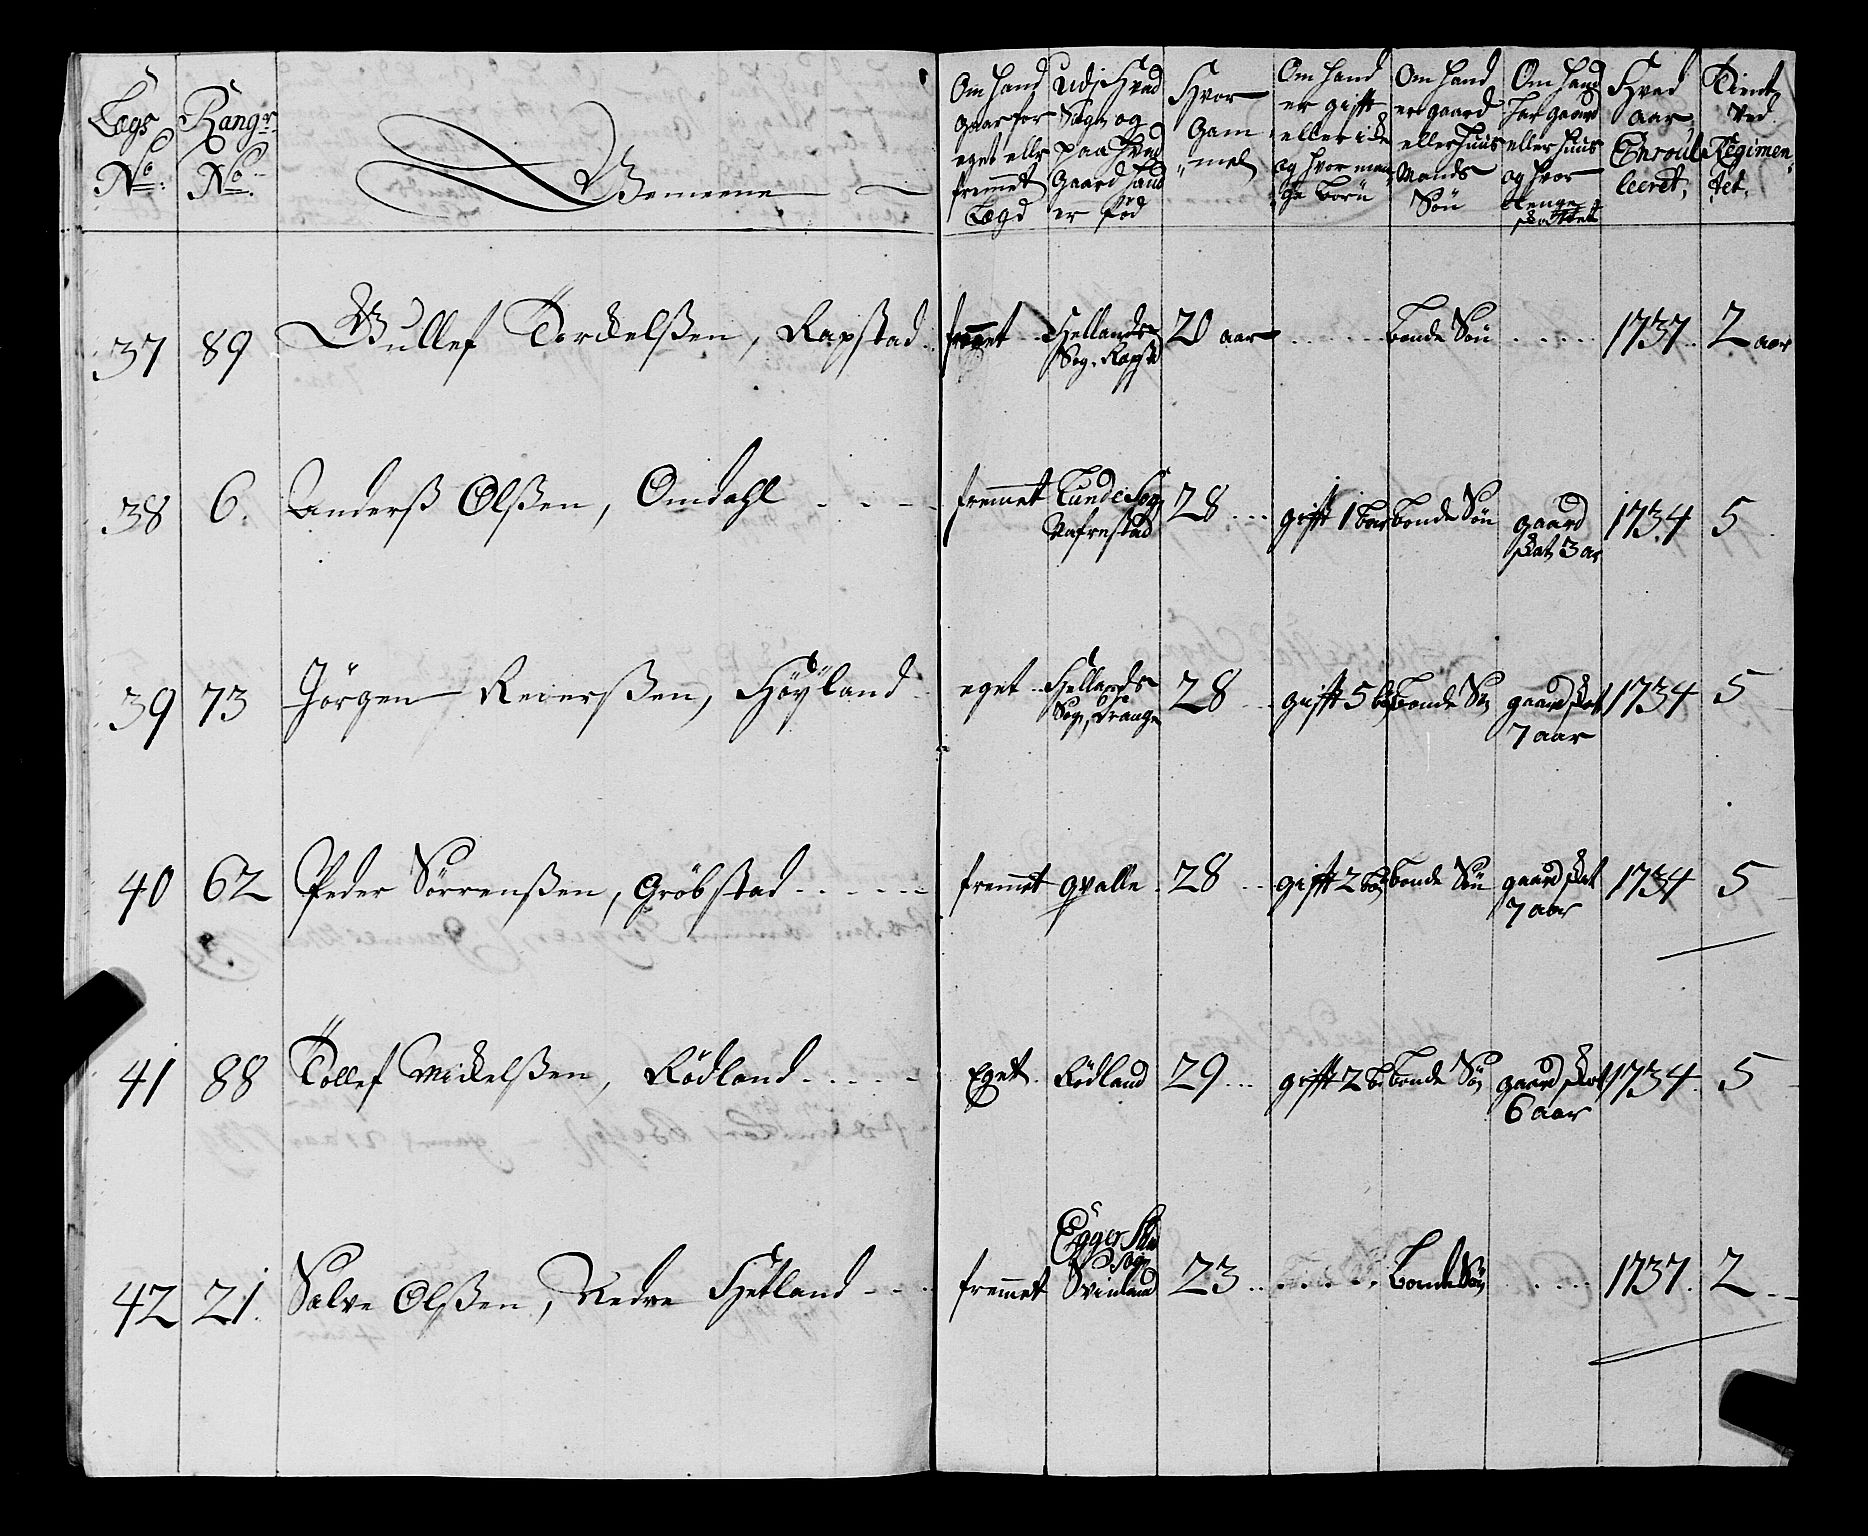 Lægs No:
Rangr No:
Gemeene
Om hand gaar for eget eller fremmet Lægd
Udi Hvad Sogn og paa hvad Gaard hand er fød
Hvor Gammel
Om hand er gifft eller icke og hvor mange børn
Om hand er gaard eller huus Mands Søn
Om hand har gaard eller huus og hvor lenge skattet
Hvad aar Enroulleeret,
Tient ved Regimentet.
37 89 Gullef Torckelsßen, Rapstad fremmet Hellands Sog. Rapst 20 aar bonde Søn 1737. 2 aar
38 6. Anderß Olßen, Omdahl fremmet Lunde Sogn 28 gifft 1 bar bonde Søn gaard skat 3 ar 1734 5
39 73 Jørgen Reierßen, Høÿland eget Hellands Sogn, Drange 28 gifft 5 bør bonde Søn gaard skat 7 aar 1734 5
40 62 Peder Sørrenßen, Grøbstad fremmet qvalle 28 gifft 2 bør bonde Søn gaard skat 7 aar 1734 5
41 88 Tollef Mickelßen, Rødland Eget Rødland 29 gifft 2 b bonde Søn gaard skat 6 aar 1734. 5
42 21. Salve Olßen, Nedre Hetland fremmet Eggersun Sogn Svinland 23 Bonde Søn 1737. 2